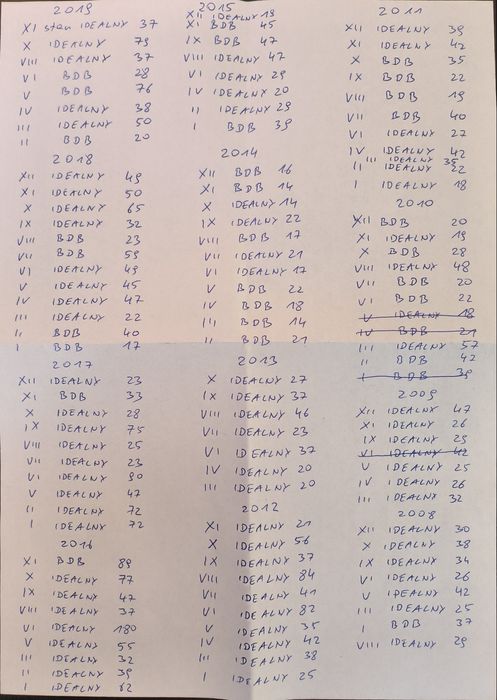 2019
XI stan IDEALNY 37
X IDEALNY 79
VIII IDEALNY 37
VI BDB 28
V BDB 76
IV IDEALNY 38
III IDEALNY 50
II BDB 20
2018
XII IDEALNY 49
XI IDEALNY 50
X IDEALNY 65
IX IDEALNY 32
VIII BDB 23
VII BDB 59
VI IDEALNY 49
V IDEALNY 45
IV IDEALNY 47
III IDEALNY 22
II BDB 40
I BDB 17
2017
XII IDEALNY 23
XI BDB 33
X IDEALNY 28
IX IDEALNY 75
VIII IDEALNY 25
VII IDEALNY 23
VI IDEALNY 90
V IDEALNY 47
II IDEALNY 72
I IDEALNY 72
2016
XI BDB 89
X IDEALNY 77
IX IDEALNY 47
VIII IDEALNY 37
VI IDEALNY 180
V IDEALNY 55
III IDEALNY 32
II IDEALNY 39
I IDEALNY 62
2015
XII IDEALNY 19
XI BDB 45
X BDB 47
VIII IDEALNY 47
VI IDEALNY 29
IV IDEALNY 20
II IDEALNY 29
I BDB 39
2014
XII BDB 16
XI BDB 14
X IDEALNY 14
IX IDEALNY 22
VIII BDB 17
VII IDEALNY 21
VI IDEALNY 17
V BDB 22
IV BDB 18
III BDB 14
II BDB 21
2013
X IDEALNY 27
IX IDEALNY 37
VIII IDEALNY 46
VII IDEALNY 23
VI IDEALNY 37
IV IDEALNY 20
III IDEALNY 20
2012
XI IDEALNY 21
X IDEALNY 56
IX IDEALNY 37
VIII IDEALNY 84
VII IDEALNY 41
VI IDEALNY 82
V IDEALNY 35
IV IDEALNY 42
III IDEALNY 38
I IDEALNY 25
2011
XII IDEALNY 39
XI IDEALNY 42
X BDB 35
IX BDB 22
VIII BDB 19
VII BDB 40
VI IDEALNY 27
IV IDEALNY 42
III IDEALNY 35
II IDEALNY 22
I IDEALNY 18
2010
XII BDB 20
XI IDEALNY 19
X BDB 28
VIII IDEALNY 48
VII BDB 20
VI BDB 22
V IDEALNY 18
IV BDB 21
III IDEALNY 57
II BDB 42
I BDB 39
2009
XII IDEALNY 47
XI IDEALNY 26
IX IDEALNY 29
VI IDEALNY 42
V IDEALNY 25
IV IDEALNY 26
III IDEALNY 32
2008
XII IDEALNY 30
X IDEALNY 38
IX IDEALNY 34
VI IDEALNY 26
V IDEALNY 42
III IDEALNY 25
I BDB 37
VIII IDEALNY 29